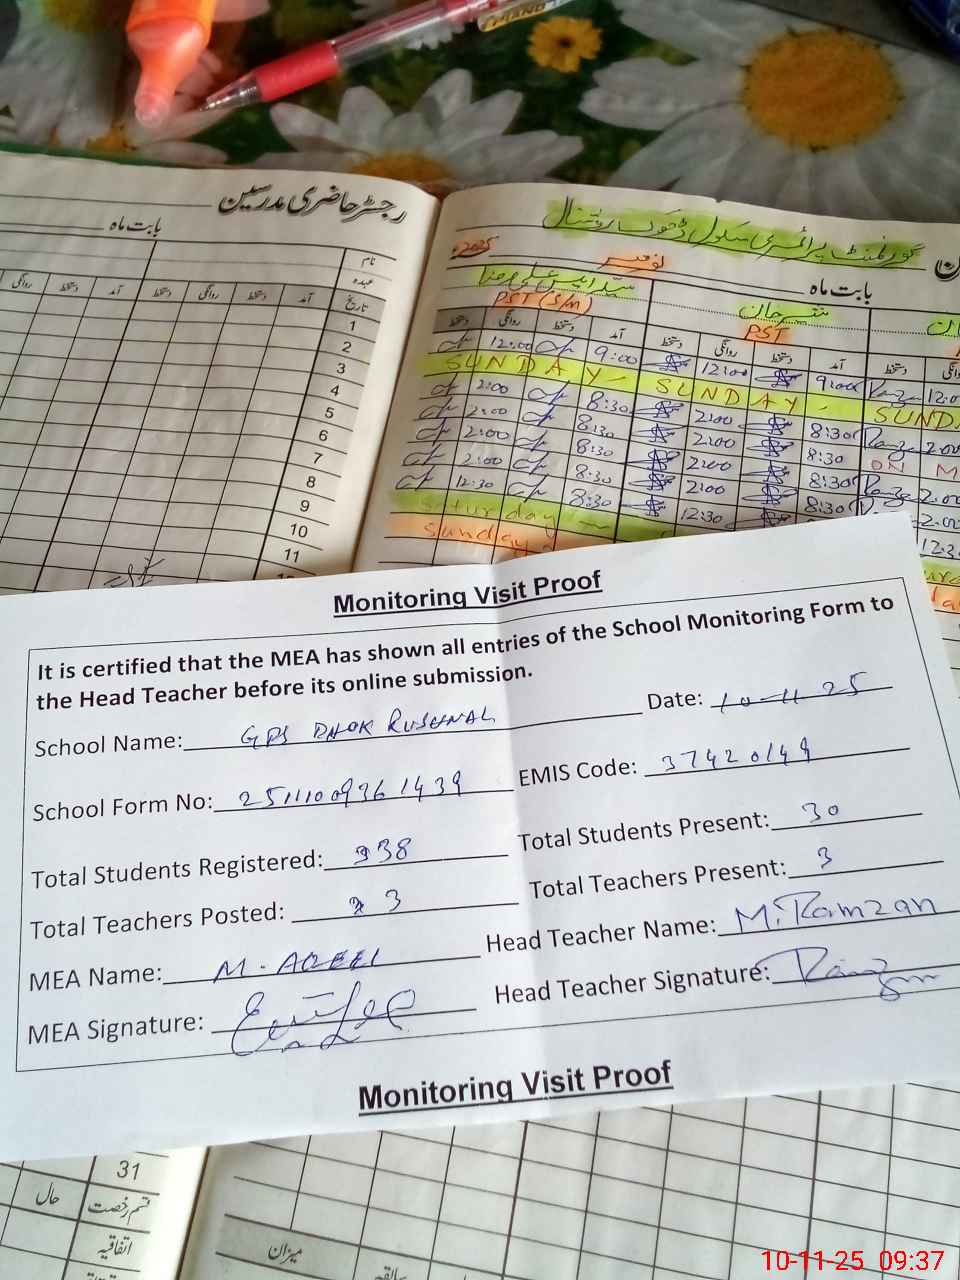 PIANO
رجسٹر حاضری مدرسین
بابت ماہ
نام
عہدہ
روانگی دستخط آمد دستخط روانگی دستخط آمد تاریخ
1
2
3
4
5
6
7
8
9
10
11
گورنمنٹ پرائمری سکول ڈھوک روشنال
2025 نومبر بابت ماہ
PST (S/M) PST
دستخط روانگی دستخط آمد دستخط روانگی دستخط آمد دستخط
12:00 9:00 12:00 9:00 12:0
SUNDAY - SUNDAY - SUNDA
2:00 8:30 2:00 8:30 2:00
2:00 8:30 2:00 8:30 ON M
2:00 8:30 2:00 8:30 2:00
2:00 8:30 2:00 8:30 2:00
12:30 8:30 12:30 12:3
Saturday
Sunday
Monitoring Visit Proof
It is certified that the MEA has shown all entries of the School Monitoring Form to
the Head Teacher before its online submission.
School Name: GPS DHOK RUSHNAL Date: 10-11-25
School Form No: 25111009361439 EMIS Code: 37420149
Total Students Registered: 38 Total Students Present: 30
Total Teachers Posted: 3 Total Teachers Present: 3
MEA Name: M. AQEEL Head Teacher Name: M. Ramzan
MEA Signature: Head Teacher Signature: Ramzan
Monitoring Visit Proof
31
حال قسم رخصت
اتفاقیہ
میزان
سالقہ
10-11-25 09:37